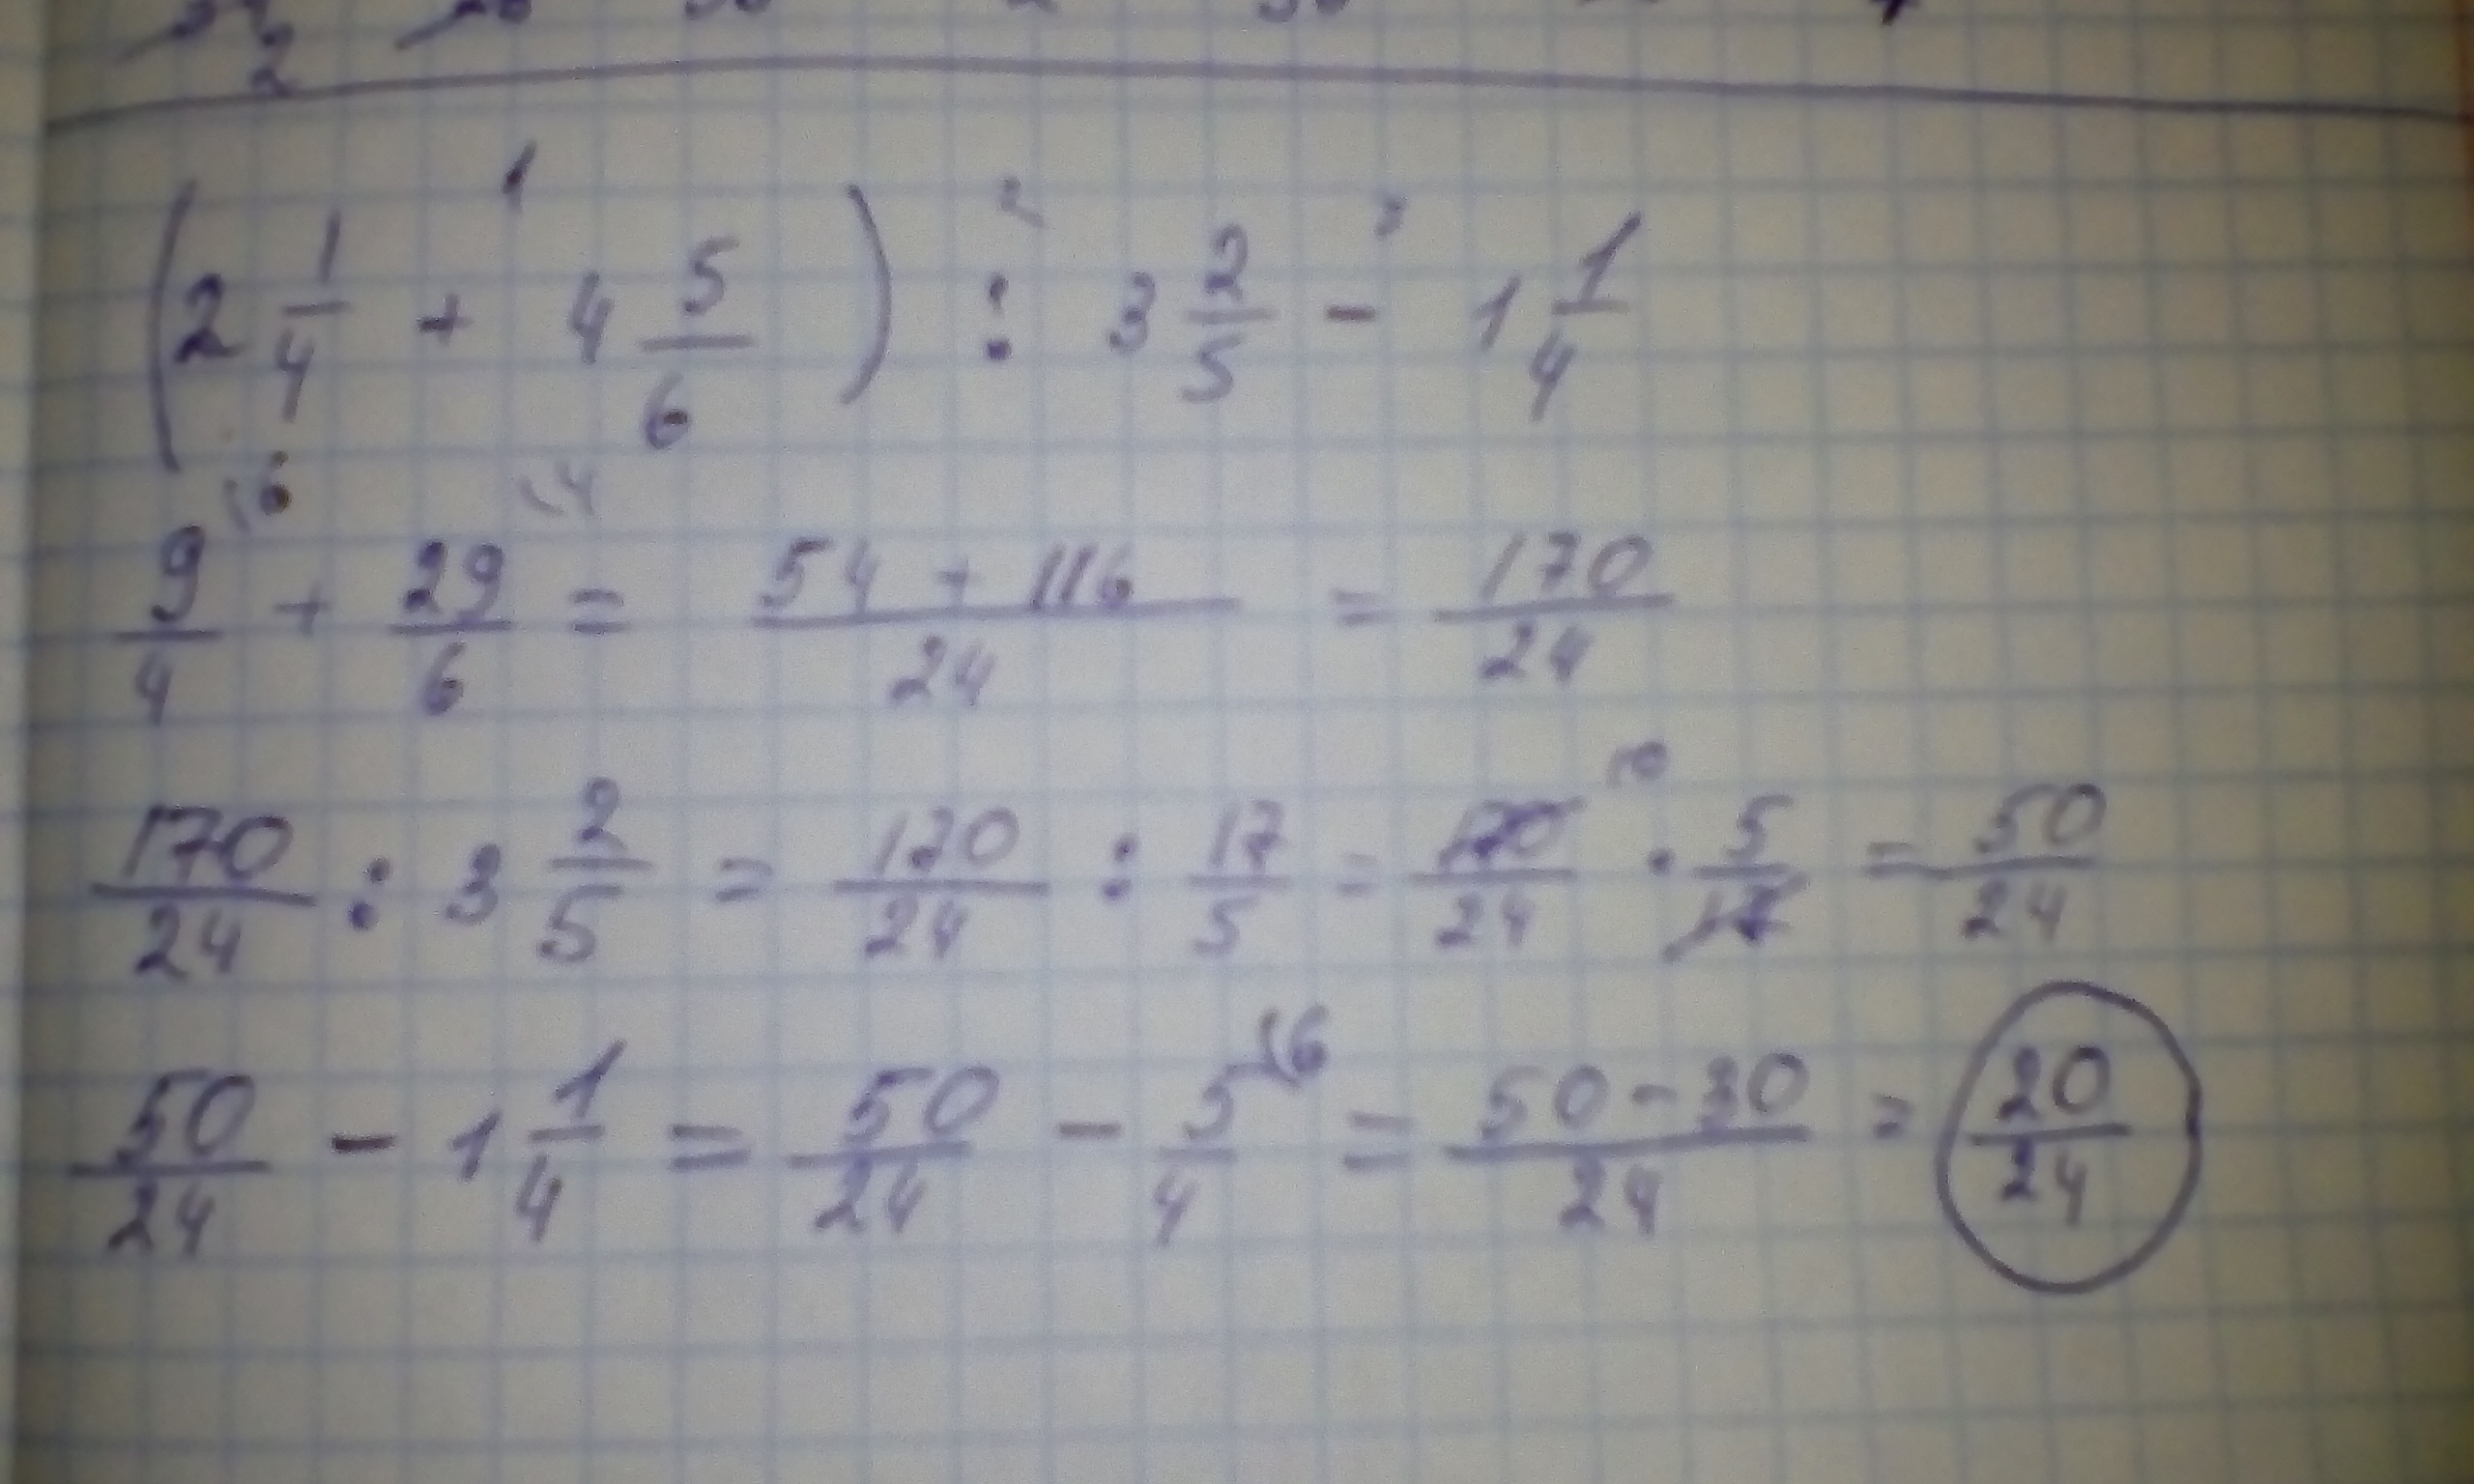 (2 1/4 + 4 5/6) : 3 2/5 - 1 1/4
9/4 + 29/6 = (54 + 116)/24 = 170/24
170/24 : 3 2/5 = 170/24 : 17/5 = 170/24 · 5/17 = 50/24
50/24 - 1 1/4 = 50/24 - 5/4 = (50 - 30)/24 = 20/24